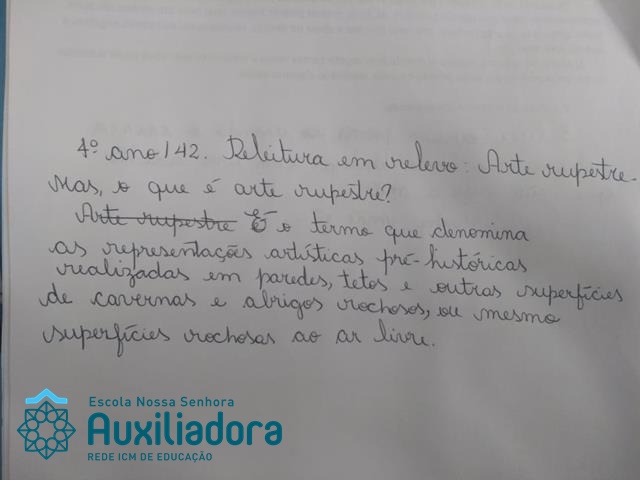 4º ano/42. Releitura em relevo: Arte rupestre.
Mas, o que é arte rupestre?
Arte rupestre É o termo que denomina
as representações artísticas pré-históricas
realizadas em paredes, tetos e outras superfícies
de cavernas e abrigos rochosos, ou mesmo
superfícies rochosas ao ar livre.
Escola Nossa Senhora
Auxiliadora
REDE ICM DE EDUCAÇÃO